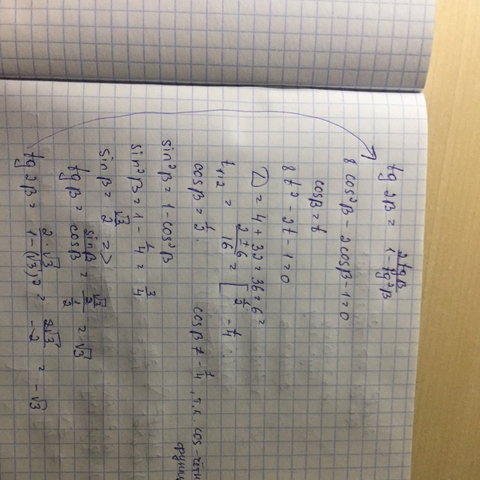 tg 2β = 2tgβ / 1 - tg²β
8 cos²β - 2cosβ - 1 = 0
cosβ = t
8t² - 2t - 1 = 0
D = 4 + 32 = 36 = 6²
t₁,₂ = 2 ± 6 / 16 = [ 1/2 - 1/4
cosβ = 1/2. cosβ ≠ - 1/4, т.к. cos - четн
функц
sin²β = 1 - cos²β
sin²β = 1 - 1/4 = 3/4
sinβ = √3/2 =>
tgβ = sinβ / cosβ = √3/2 / 1/2 = √3
tg 2β = 2·√3 / 1 - (√3)² = 2√3 / -2 = - √3